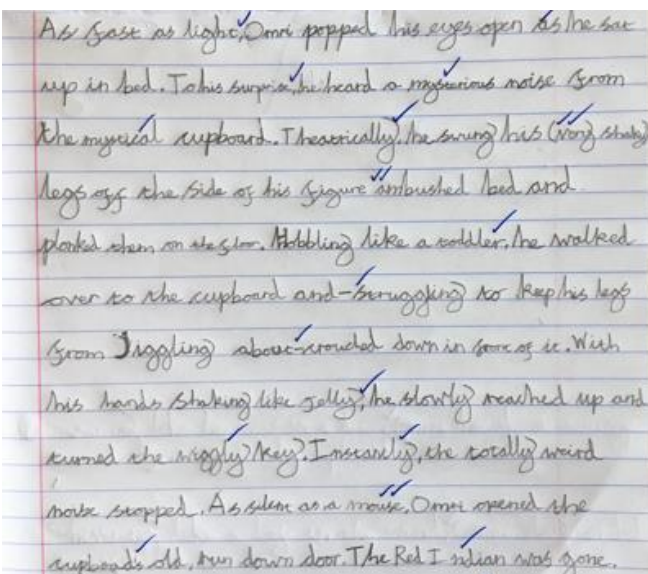 As fast as light, Omri popped his eyes open as he sat
up in bed. To his surprise, he heard a mysterious noise from
the mystical cupboard. Theatrically, he swung his (very shaky)
legs off the side of his figure ambushed bed and
plonked them on the floor. Hobbling like a toddler, he walked
over to the cupboard and-struggling to keep his legs
from Jiggling about-crouded down in front of it. With
his hands shaking like Jelly, he slowly reached up and
turned the niggly key. Instantly, the totally weird
noise stopped. As silent as a mouse, Omri opened the
cupboad's old, run down door. The Red Indian was gone.